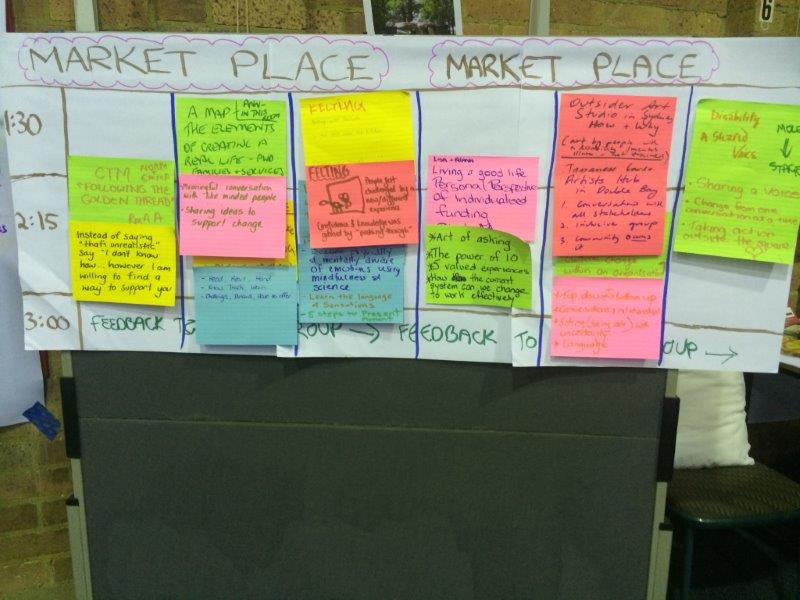 MARKET PLACE
MARKET PLACE
6
1:30
2:15
3:00
CTM
"FOLLOWING THE
GOLDEN THREAD"
Instead of saying
"that's unrealistic"
say "I don't know
how... however I am
willing to find a
way to support you
A MAP
IN THIS
ROOM
THE ELEMENTS
OF CREATING A
REAL LIFE - PWD
FAMILIES + SERVICES
Meaningful conversation
with like minded people
- Sharing ideas to
support change
- Real, Hard
FELTING
FELTING
People felt
challenged by a
new/different
experience
Confidence & knowledge was
gained by "pushing through"
& mentally aware
of emotions using
mindfulness &
science
- Learn the language
of Sensations
- 5 steps to Present
Moment
Living a good life
Personal Perspective
of individualised
funding
*Art of asking
*The power of 10
*5 valued experiences
*How the current
system can we change
to work effectively
Outsider Art
Studio in Sydney
How + Why
Artists Hub
in Double Bay
1. Conversations with
all stakeholders
2. inclusive groups
3. Community owns
it
within an organisation
- Top down/bottom up
- Sitting (being ok) with
uncertainty
- Language
Disability
A Shared
Voice
MOVE
↓
- Sharing a voice
- Change from one
- Taking action
outside the square
FEEDBACK TO
OUP →
FEEDBACK TO
OUP →